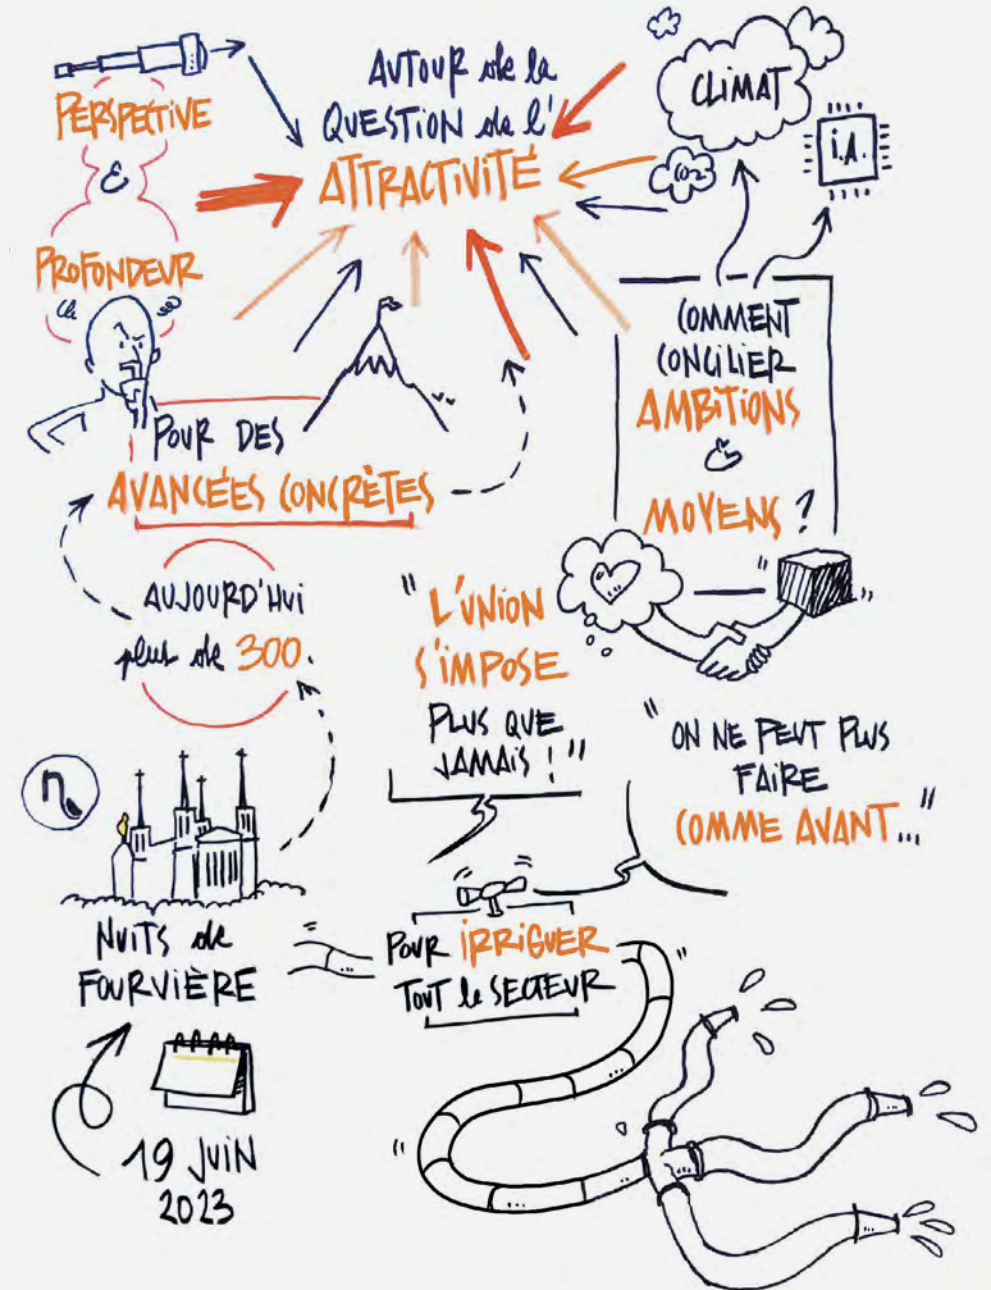 AUTOUR de la
QUESTION de l'
ATTRACTIVITÉ
PERSPECTIVE
&
PROFONDEUR
CLIMAT
CO2
I.A.
COMMENT
CONCILIER
AMBITIONS
&
MOYENS ?
POUR DES
AVANCÉES CONCRÈTES
AUJOURD'HUI
plus de 300.
"L'UNION
S'IMPOSE
PLUS QUE
JAMAIS !"
"ON NE PEUT PLUS
FAIRE
COMME AVANT..."
NUITS de
FOURVIÈRE
POUR IRRIGUER
TOUT le SECTEUR
19 JUIN
2023